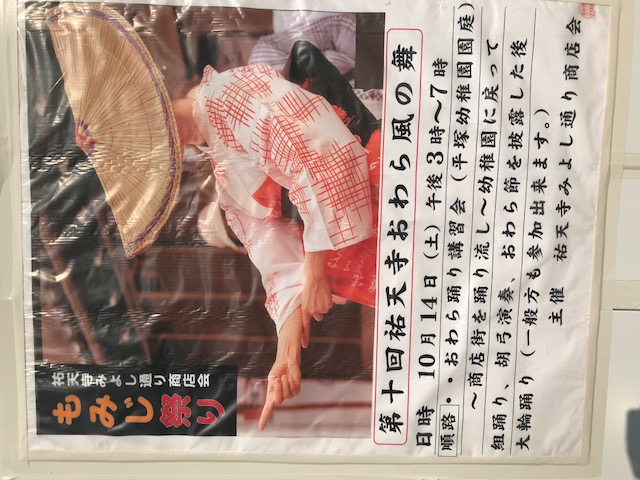 祐天寺みよし通り商店会
もみじ祭り
第十回祐天寺おわら風の舞
日時　10月14日（土）午後3時〜7時
順路・・おわら踊り講習会（平塚幼稚園園庭）
〜商店街を踊り流し〜幼稚園に戻って
組踊り、胡弓演奏、おわら節を披露した後
大輪踊り（一般方も参加出来ます。）
主催　祐天寺みよし通り商店会